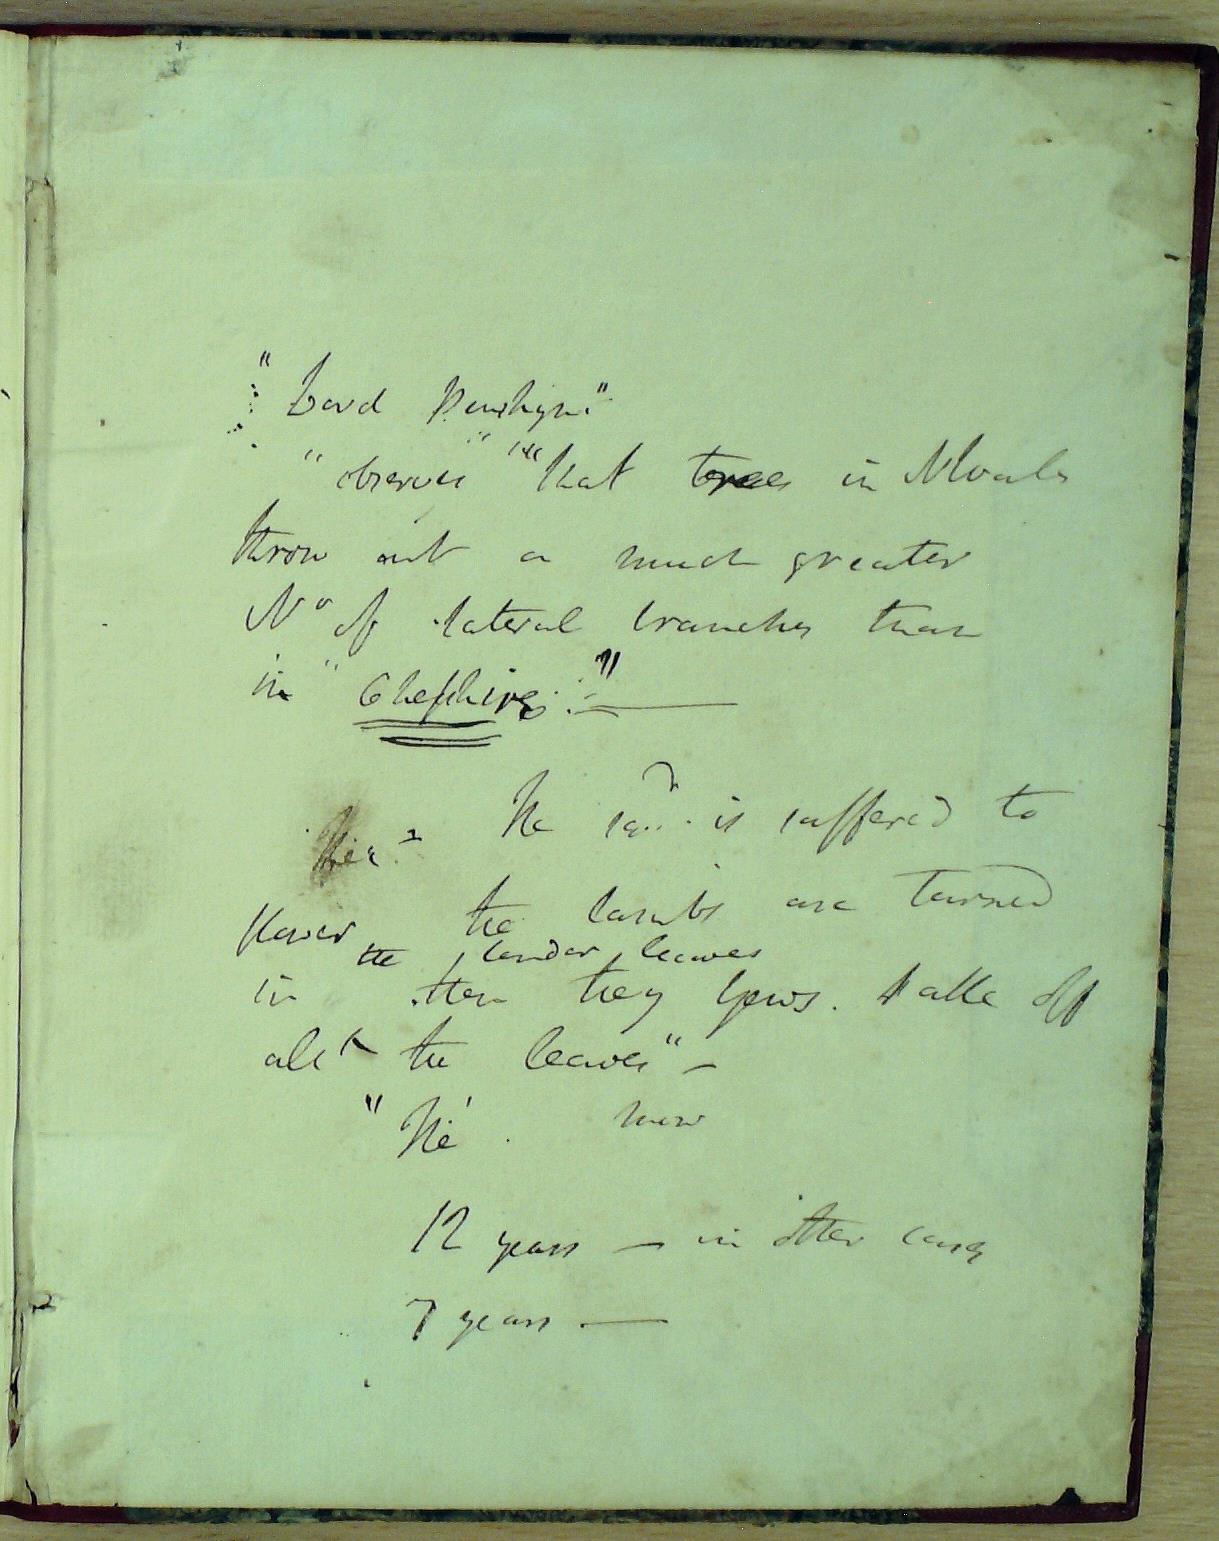 "Lord Penrhyn"
"observes" "that trees in N Wales
throw out a much greater
No of lateral branches than
in "Cheshire."
The is suffered to
flower the lambs are turned
the tender leaves
in then they take off
all the leaves" -
"The mow
12 years - in other cases
7 years -